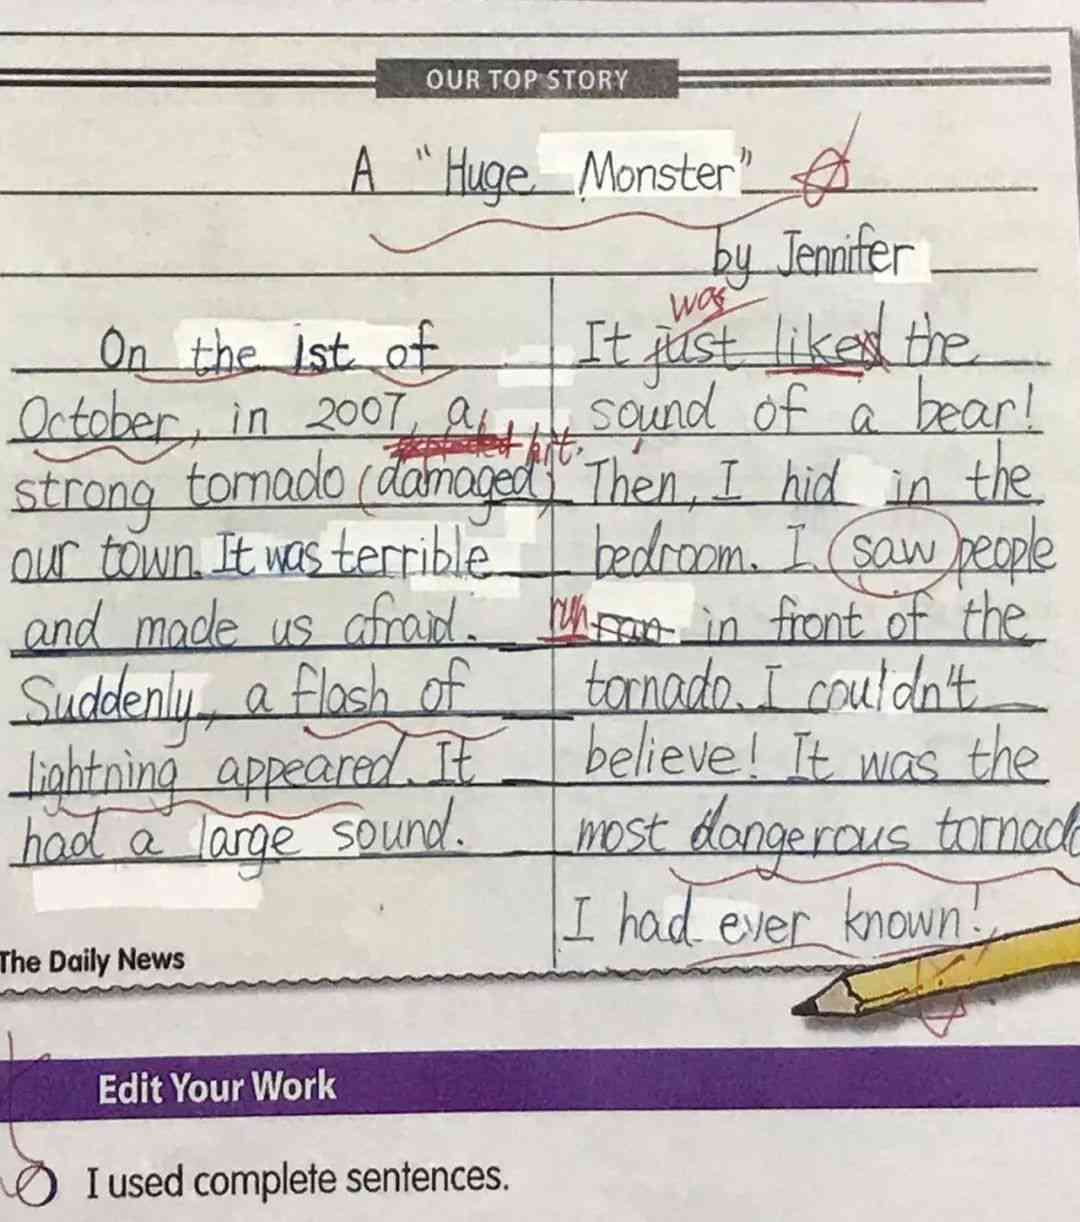 OUR TOP STORY
A "Huge Monster"
by Jennifer
On the 1st of
October, in 2007, a
hit.
strong tornado (damaged)
our town. It was terrible
and made us afraid.
Suddenly, a flash of
lightning appeared. It
had a large sound.
The Daily News
was
It just liked the
sound of a bear!
Then, I hid in the
bedroom. I saw people
run ran in front of the
tornado. I couldn't
believe! It was the
most dangerous tornado
I had ever known!
Edit Your Work
I used complete sentences.